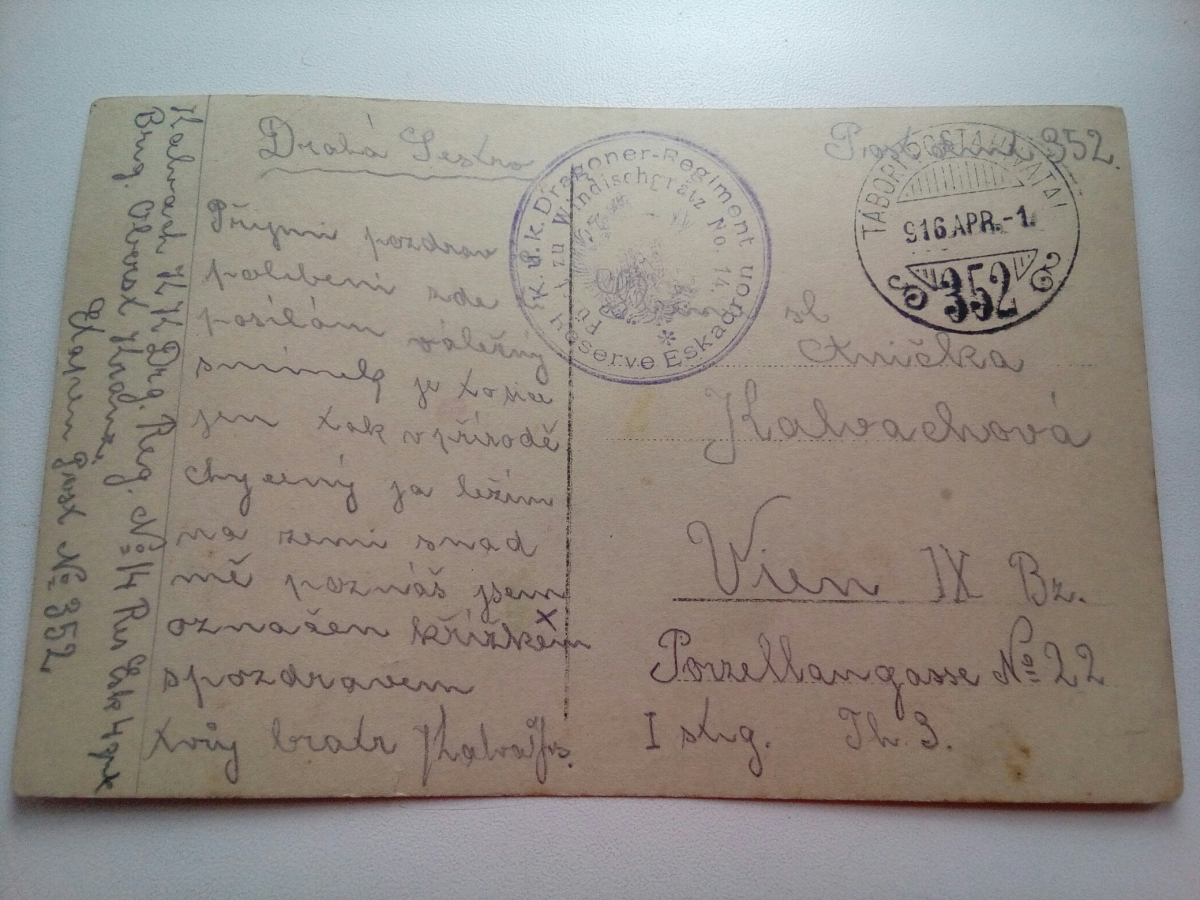 Drahá Sestro
Přijmi pozdrav
políbení zde
posílám válečný
snímek je to sice
jen tak v přírodě
chycený ja ležím
na zemi snad
mě poznáš jsem
x
označen křížkem
spozdravem
tvůj bratr
K. u. k. Dragoner-Regiment
Fürst zu Windischgrätz No. 14.
* Reserve Eskadron
352.
TÁBORI POSTAHIVATAL
916 APR.-1.
352
sl
Anička
Kalvachová
Wien IX Bz.
Porzellangasse No 22
I stg. Th. 3.
Kalvach K K Drg. Reg. No 14 Res Esk 4
Brug.
Post No 352